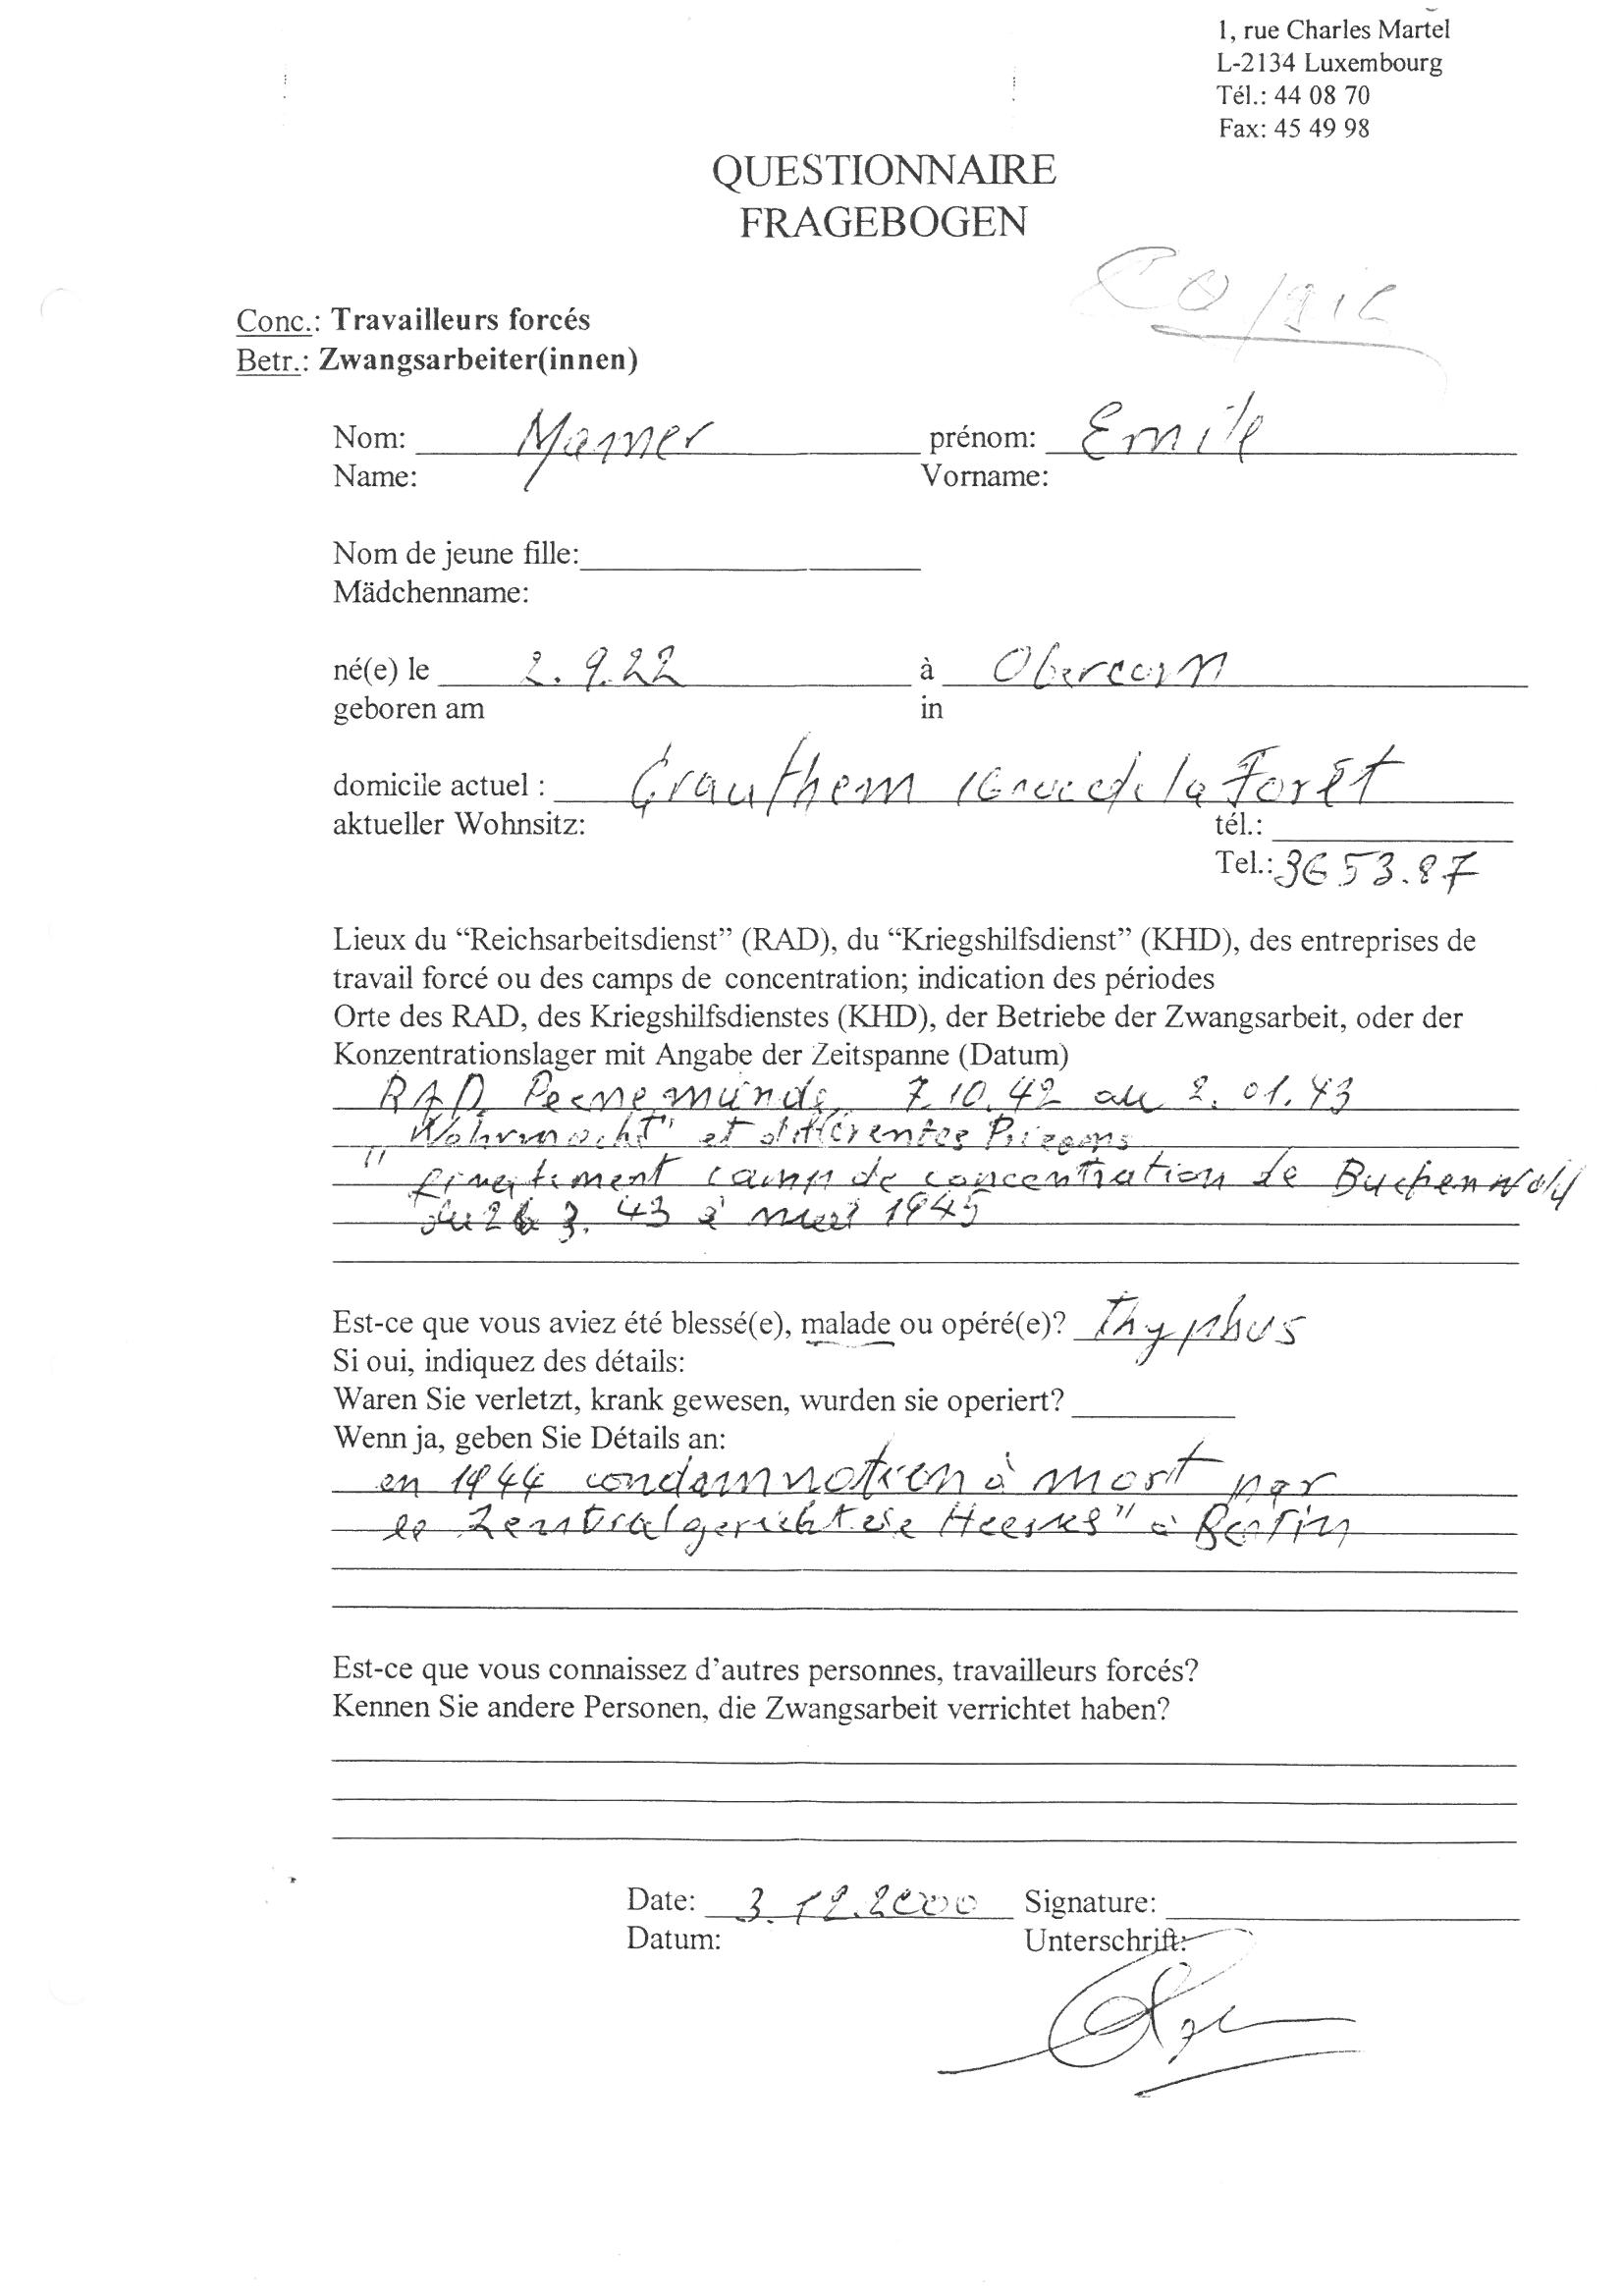 1, rue Charles Martel
L-2134 Luxembourg
Tél.: 44 08 70
Fax: 45 49 98
QUESTIONNAIRE
FRAGEBOGEN
Copie
Conc.: Travailleurs forcés
Betr.: Zwangsarbeiter(innen)
Nom: Mamer prénom: Emile
Name: Vorname:
Nom de jeune fille:
Mädchenname:
né(e) le 2.9.22 à Obercorn
geboren am in
domicile actuel : Crauthem rue de la Forêt
aktueller Wohnsitz: tél.:
Tel.: 36 53.87
Lieux du “Reichsarbeitsdienst” (RAD), du “Kriegshilfsdienst” (KHD), des entreprises de
travail forcé ou des camps de concentration; indication des périodes
Orte des RAD, des Kriegshilfsdienstes (KHD), der Betriebe der Zwangsarbeit, oder der
Konzentrationslager mit Angabe der Zeitspanne (Datum)
RAD Peenemünde 7.10.42 au 2.01.43
"Wehrmacht" et différentes Prisons
camp de concentration de Buchenwald
3.43 à 1945
Est-ce que vous aviez été blessé(e), malade ou opéré(e)? Thyphus
Si oui, indiquez des détails:
Waren Sie verletzt, krank gewesen, wurden sie operiert?
Wenn ja, geben Sie Détails an:
en 1944 condamnation à mort par
le Zentralgericht des Heeres" à Berlin
Est-ce que vous connaissez d’autres personnes, travailleurs forcés?
Kennen Sie andere Personen, die Zwangsarbeit verrichtet haben?
Date: 3.12.2000 Signature:
Datum: Unterschrift: